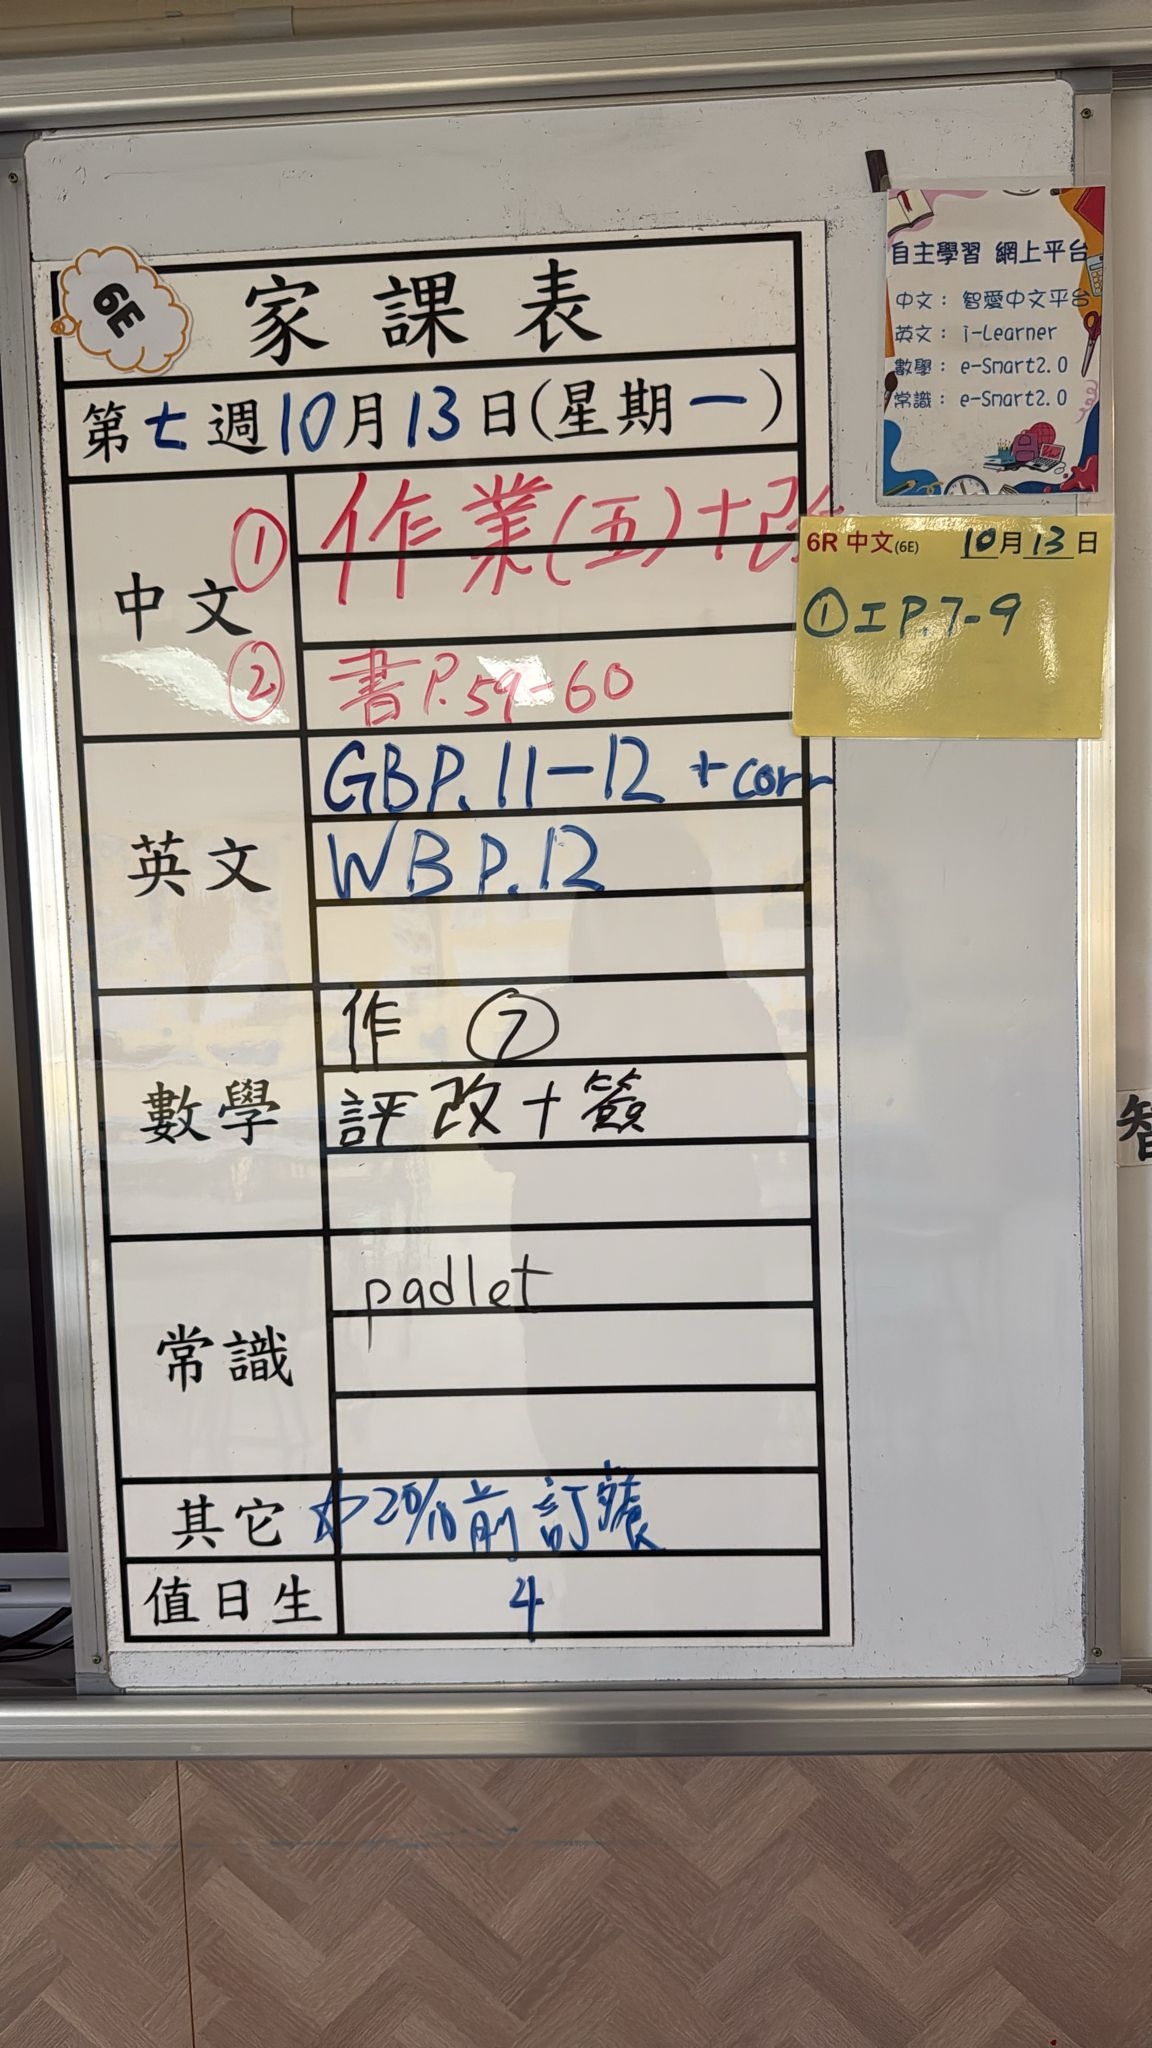 6E
家課表
第七週10月13日(星期一)
中文
① 作業(五)+改
② 書P.59-60
英文
GBP.11-12 +corr
WBP.12
數學
作 ⑦
評改+簽
常識
padlet
其它
☆20/10前訂餐
值日生
4
自主學習 網上平台
中文: 智愛中文平台
英文: i-Learner
數學: e-Smart2.0
常識: e-Smart2.0
6R 中文(6E) 10月13日
①工P.7-9